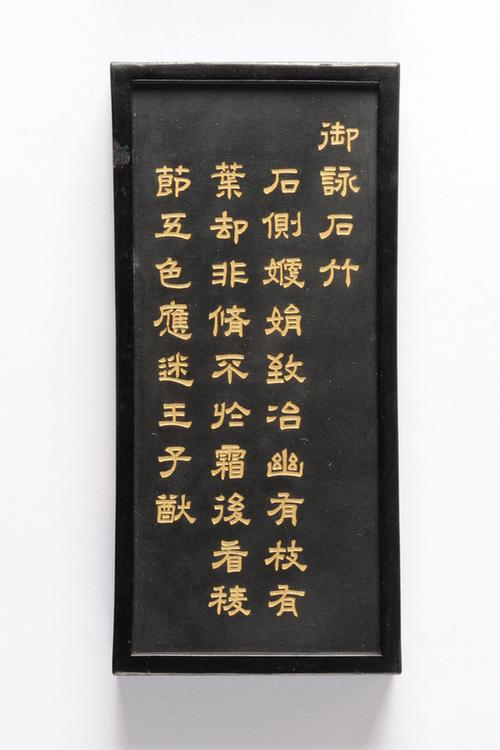 御詠石竹
石側㛹娟致冶幽有枝有
葉却非脩不於霜後看稜
節五色應迷王子猷